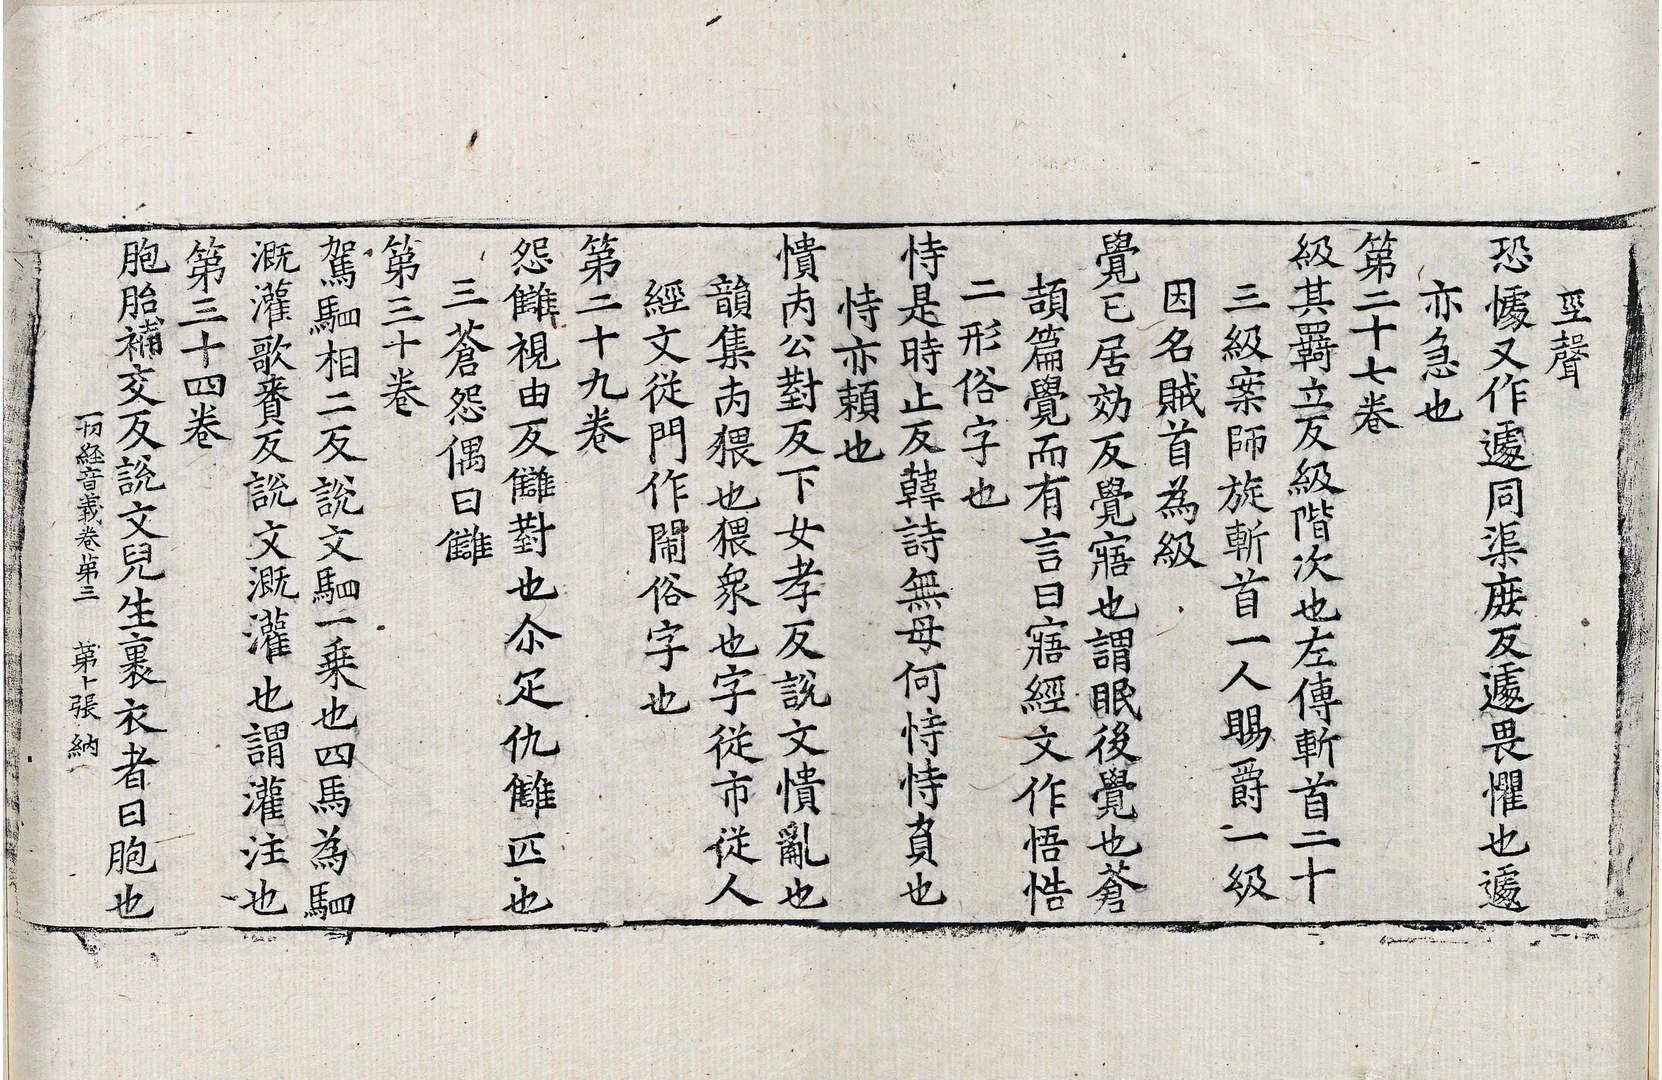 巠聲
恐懅又作遽同渠庶反遽畏懼也遽
亦急也
第二十七卷
級其羇立反級階次也左傳斬首二十
三級案師旋斬首一人賜爵一級
因名賊首為級
覺已居効反覺寤也謂眠後覺也蒼
頡篇覺而有言曰寤經文作悟悎
二形俗字也
恃是時止反韓詩無母何恃恃負也
恃亦賴也
憒肉公對反下女孝反說文憒亂也
韻集肉猥也猥衆也字從市從人
經文從門作閙俗字也
第二十九卷
怨讎視由反讎對也尒疋仇讎匹也
三蒼怨偶曰讎
第三十卷
駕駟相二反說文駟一乗也四馬為駟
溉灌歌賚反說文溉灌也謂灌注也
第三十四卷
胞胎補交反說文兒生裹衣者曰胞也
一切經音義卷第三 第十張 納